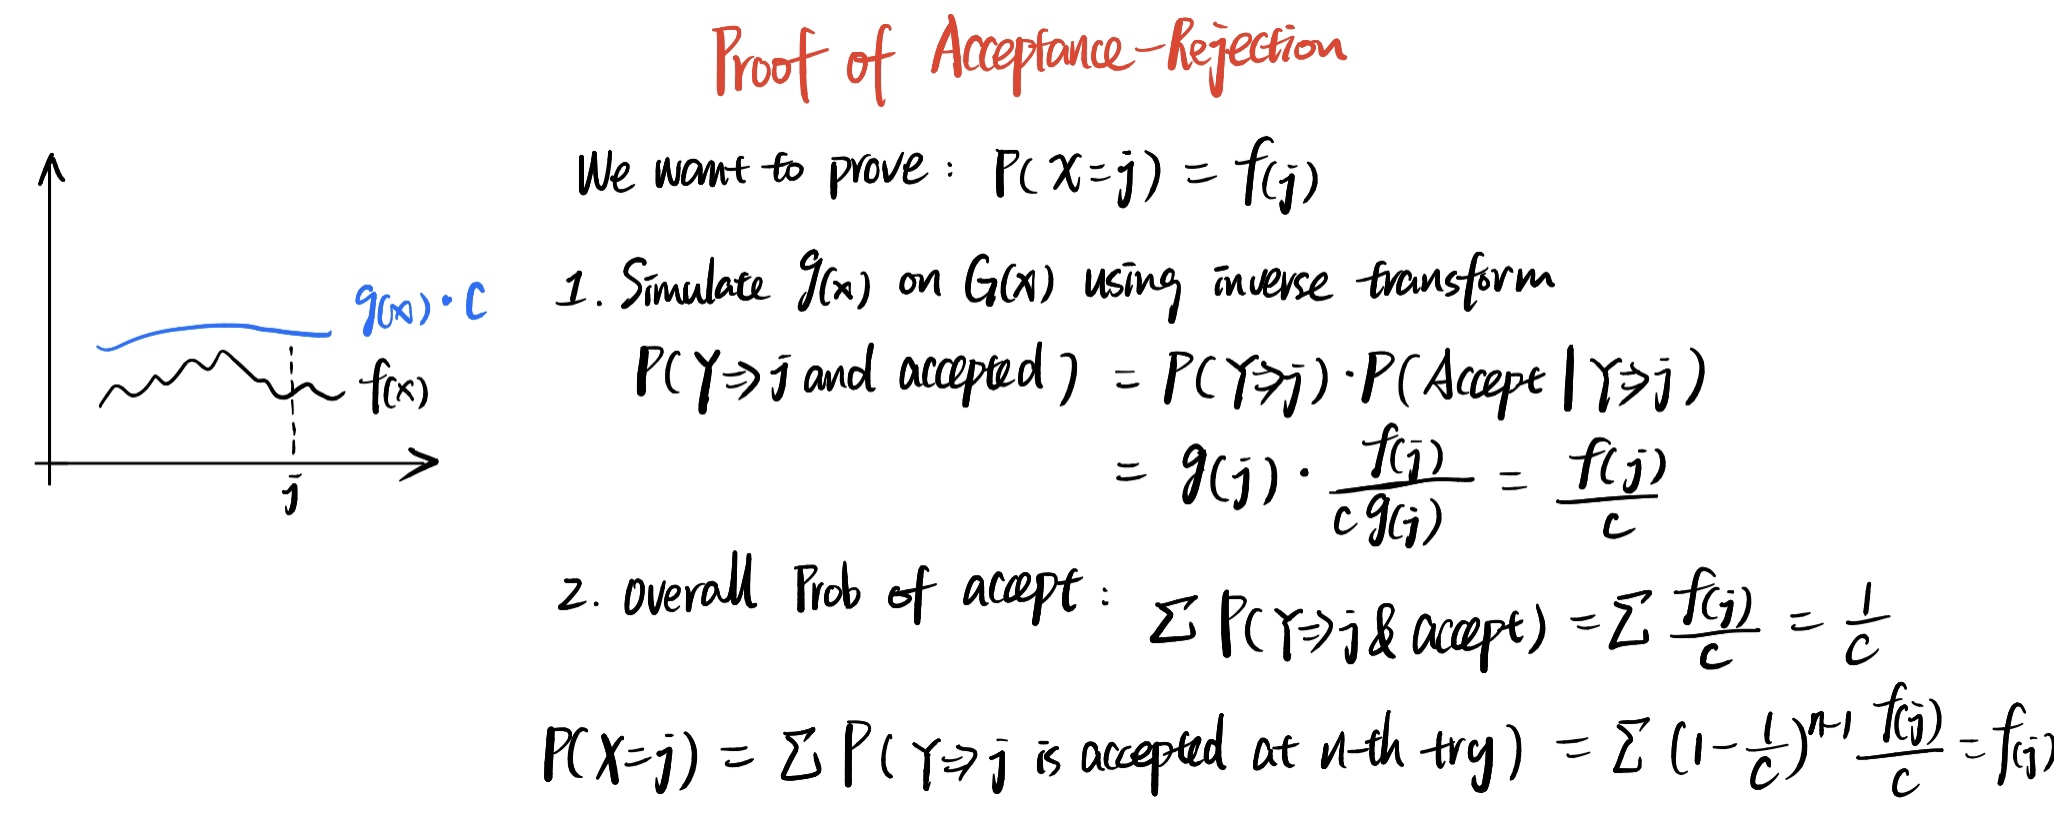 Proof of Acceptance-Rejection
We want to prove: P(X=j) = f(j)
g(x)·c
f(x)
j
1. Simulate g(x) on G(x) using inverse transform
P(Y⇒j and accepted) = P(Y⇒j)·P(Accept | Y⇒j)
= g(j) · f(j)/(c g(j)) = f(j)/c
2. overall Prob of accept: Σ P(Y⇒j & accept) = Σ f(j)/c = 1/c
P(X=j) = Σ P(Y⇒j is accepted at n-th try) = Σ (1-1/c)^(n-1) f(j)/c = f(j)